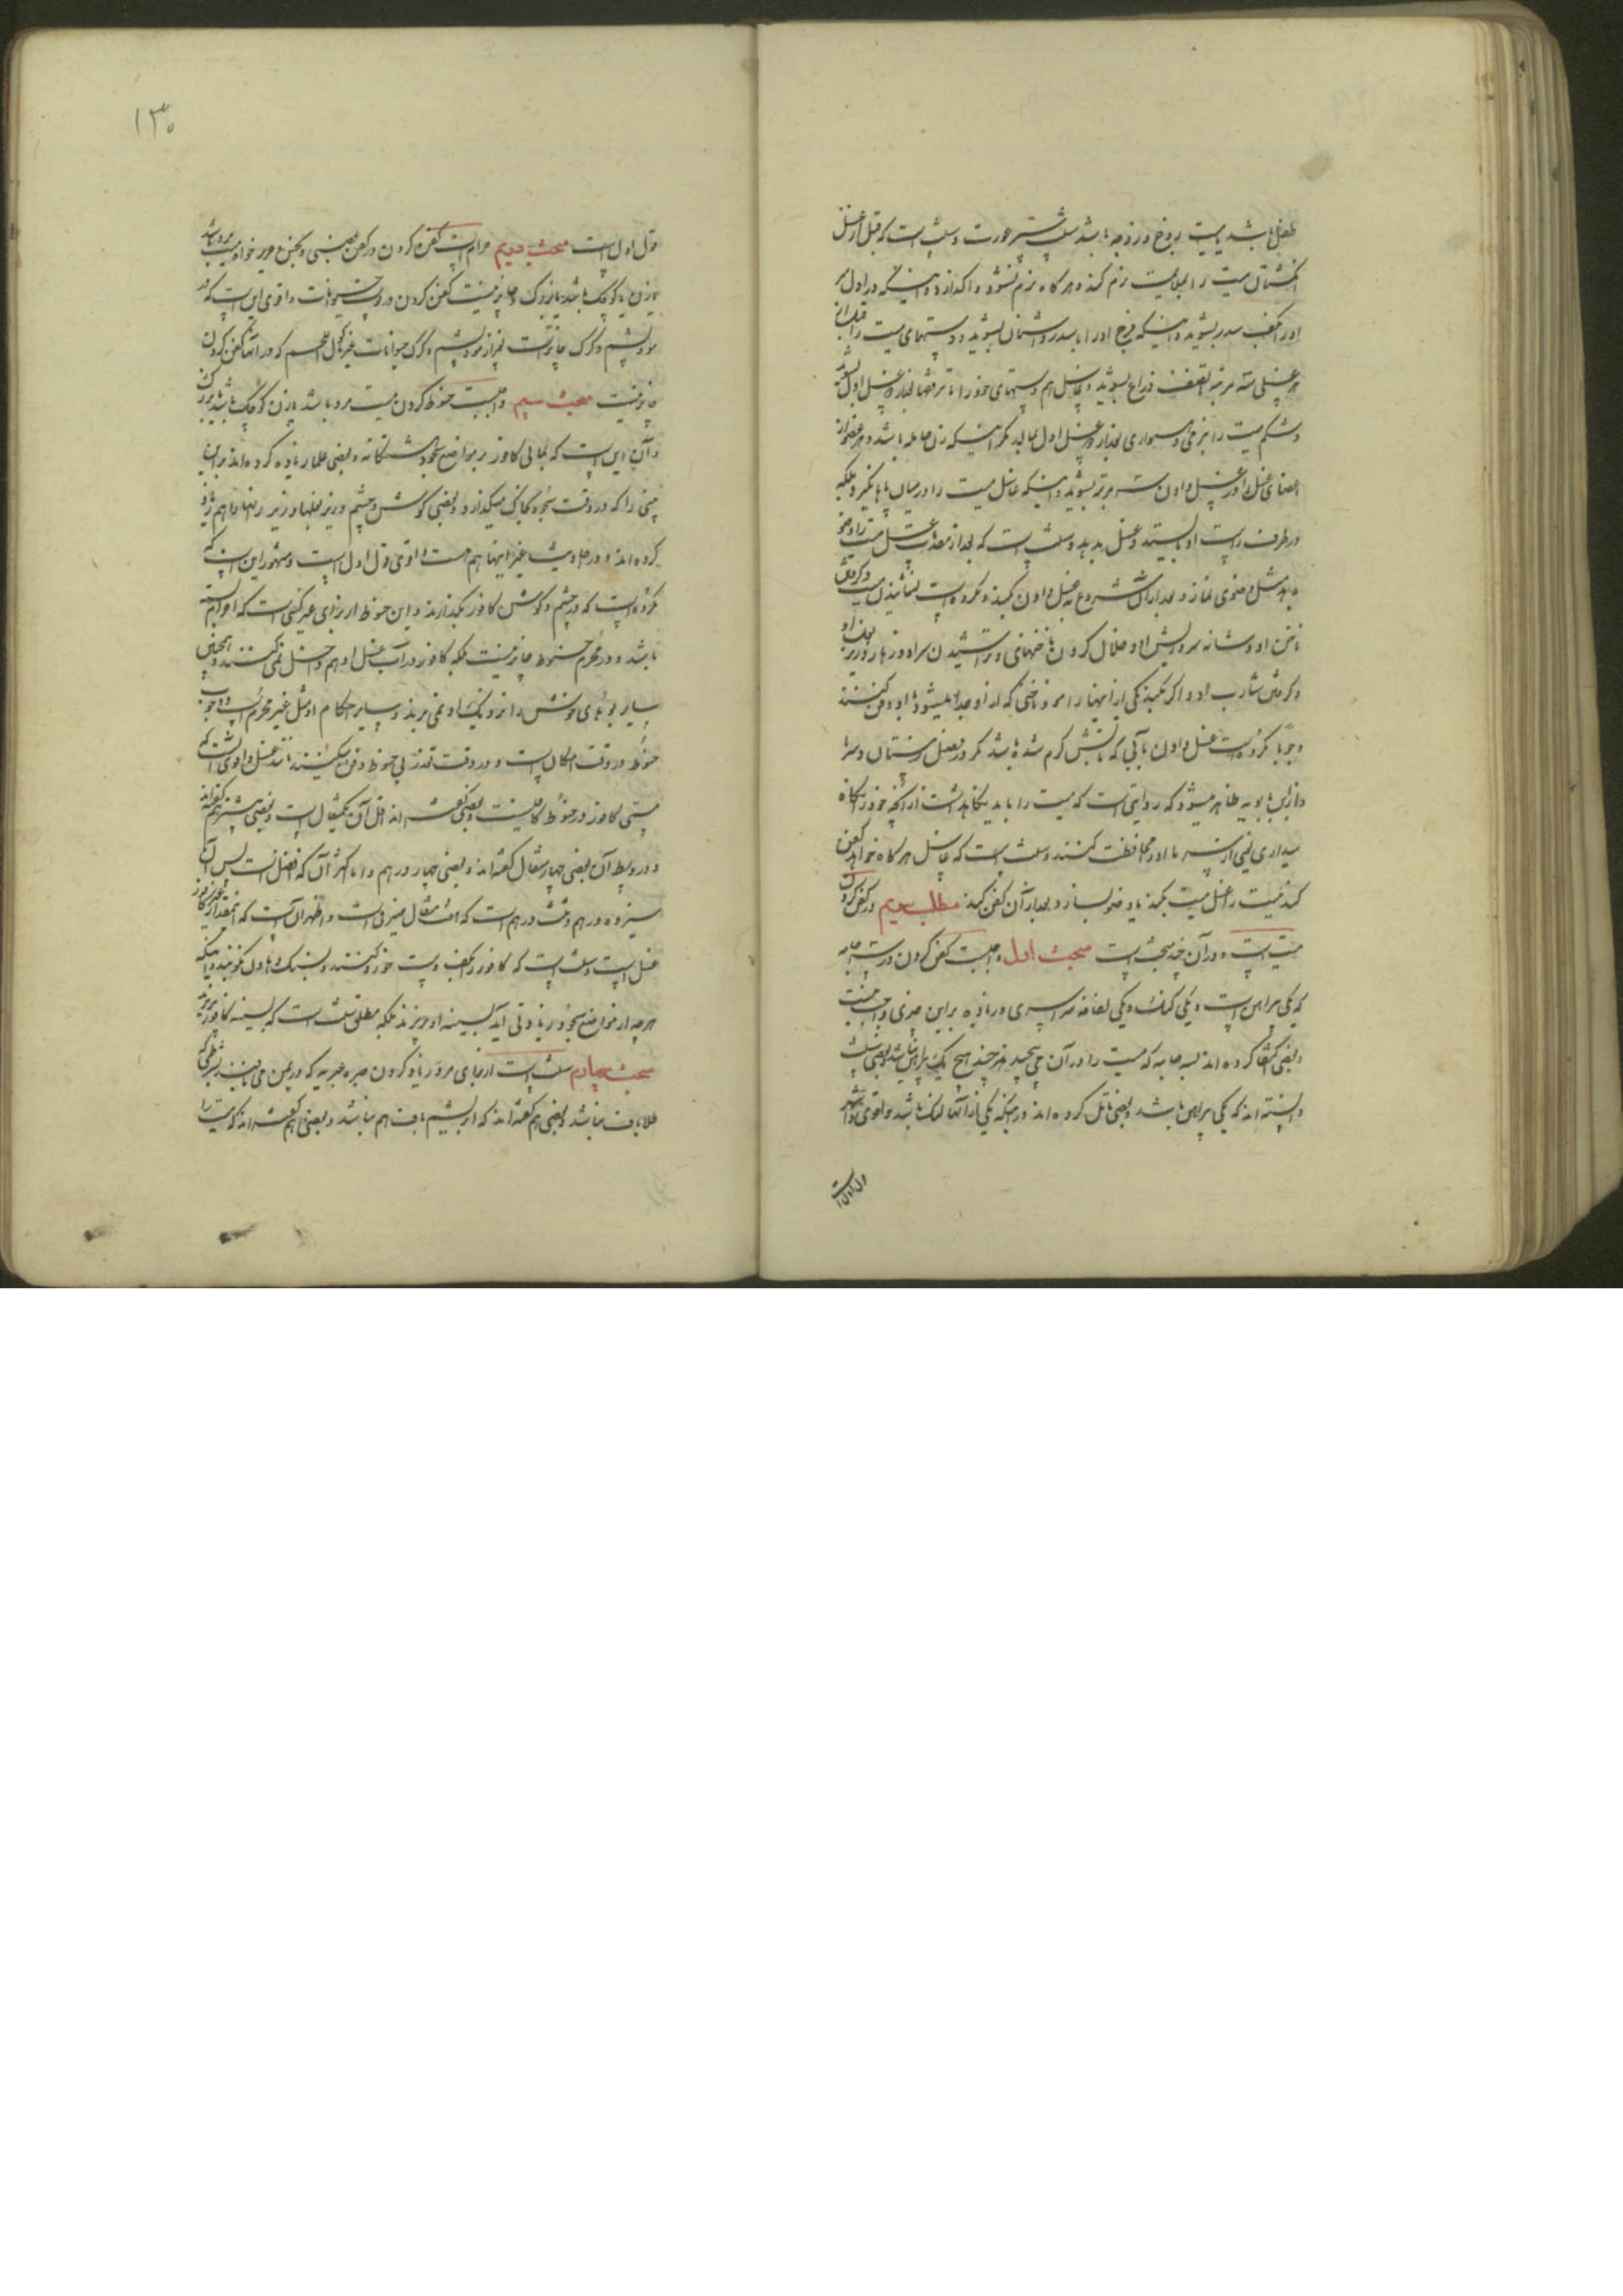 طفل باشد یا میت زوج و زوجه باشد سنت ستر عورت و سنت است که قبل از غسل
انگشتان میت را بملایمت نرم کند و هر گاه نرم نشود واگذارد و اینکه در اول سر
او را بکف سدر بشوید و اینکه فرج او را با سدر و اشنان بشوید و دستهای میت را قبل از
هر غسلی سه مرتبه تا نصف ذراع بشوید و غاسل هم دستهای خود را تا مرفقها بعد از غسل اول بشوید
و شکم میت را بنرمی و همواری بعد از غسل اول بمالد مگر اینکه زن حامله باشد و هر عضو از
اعضای غسل را در غسل دادن سه مرتبه بشوید و اینکه غاسل میت را در میان پاها نگیرد بلکه
در طرف راست او بایستد و غسل بدهد و سنت است که بعد از مقدمات غسل میت را وضو
بدهد مثل وضوی نماز و بعد از آن شروع به غسل دادن کند و مکروه است نشانیدن میت و گرفتن
ناخن او و شانه سر و ریش او و خلال کردن ناخنهای و تراشیدن سر او و زهار و زیر بغل او
و گرفتن شارب او و اگر بکند یکی از اینها را مو و ناخنی که از او جدا میشود با او دفن کنند
وجوبا و مکروه است غسل دادن بآبی که بآتش گرم شده باشد مگر در فصل زمستان و سرما
و از ابن بابویه ظاهر میشود که روایتی است که میت را باید نگاهداشت از آنچه خود را نگاه
میداری یعنی از سرما او را محافظت کنند و سنت است که غاسل هر گاه خواهد کفن
کند میت را غسل میت بکند یا وضو بسازد و بعد از آن کفن کند مطلب سیم در کفن کردن
میت است و در آن چند بحث است مبحث اول واجبست کفن کردن در سه جامه
که یکی پیراهن است و یکی لنگ و یکی لفافه سراسری و زیاده بر این چیزی واجب نیست
و بعضی اکتفا کرده اند بسه جامه که میت را در آن می پیچند هر چند هیچ یک پیراهن نباشد و بعضی سنت
دانسته اند که یکی پیراهن باشد و بعضی تأمل کرده اند در اینکه یکی از آنها لنگ باشد و اقوی و اشهر
قول اول است
۱۳۰
قول اول است مبحث دویم حرام است کفن کردن در کفن غصبی و نجس و حریر خواه میت مرد باشد
یا زن یا کوچک باشد یا بزرگ و جایز نیست کفن کردن در پوست حیوانات و اقوی این است که در
مو و پشم و کرک جایز است غیر از مو و پشم و کرک حیوانات غیر مأکول اللحم که در آنها کفن کردن
جایز نیست مبحث سیم واجبست حنوط کردن میت مرد باشد یا زن کوچک باشد یا بزرگ
و آن این است که بمالی کافور بر مواضع سجود هشتگانه و بعضی علما زیاده کرده اند بر این
بینی را که در وقت سجود بخاک میگذارد و بعضی گوش و چشم و زیر بغلها و زیر رانها را هم زیاد
کرده اند و در حدیث غیر اینها هم هست و اقوی قول اول است و مشهور این است که
مکروه است که در چشم و گوش کافور بگذارند و این حنوط از برای غیر کسی است که احرام بسته
باشد و در محرم حنوط جایز نیست بلکه کافور در آب غسل او هم داخل نمی کنند و همچنین
سایر بوهای خوش را نزدیک او نمی برند و سایر احکام او مثل غیر محرم است و وجوب
حنوط در وقت امکان است و در وقت تعذر بی حنوط دفن میکنند مانند غسل و اقوی اینست که
مسمی کافور در حنوط کافیست و بعضی گفته اند اقل آن یکمثقال است و بعضی بیشتر هم گفته اند
و در وسط آن بعضی چهار مثقال گفته اند و بعضی چهار درهم و اما اکثر آن که افضل است پس آن
سیزده درهم و ثلث درهم است که هفت مثقال صیرفی است و اظهر آن است که اینمقدار غیر از کافور
غسل است و سنت است که کافور را بکف دست خورد کنند و بسنگ و هاون نکوبند و اینکه
هر چه از مواضع سجود زیادتی آید بسینه او بریزند بلکه مطلقا سنت است که بسینه کافور بریزند
مبحث چهارم سنت است از برای مرد زیاد کردن حبره عبریه که در یمن می بافند بشرطی که
طلاباف نباشد و بعضی هم گفته اند که ابریشم باف هم نباشد و بعضی هم گفته اند که میت را